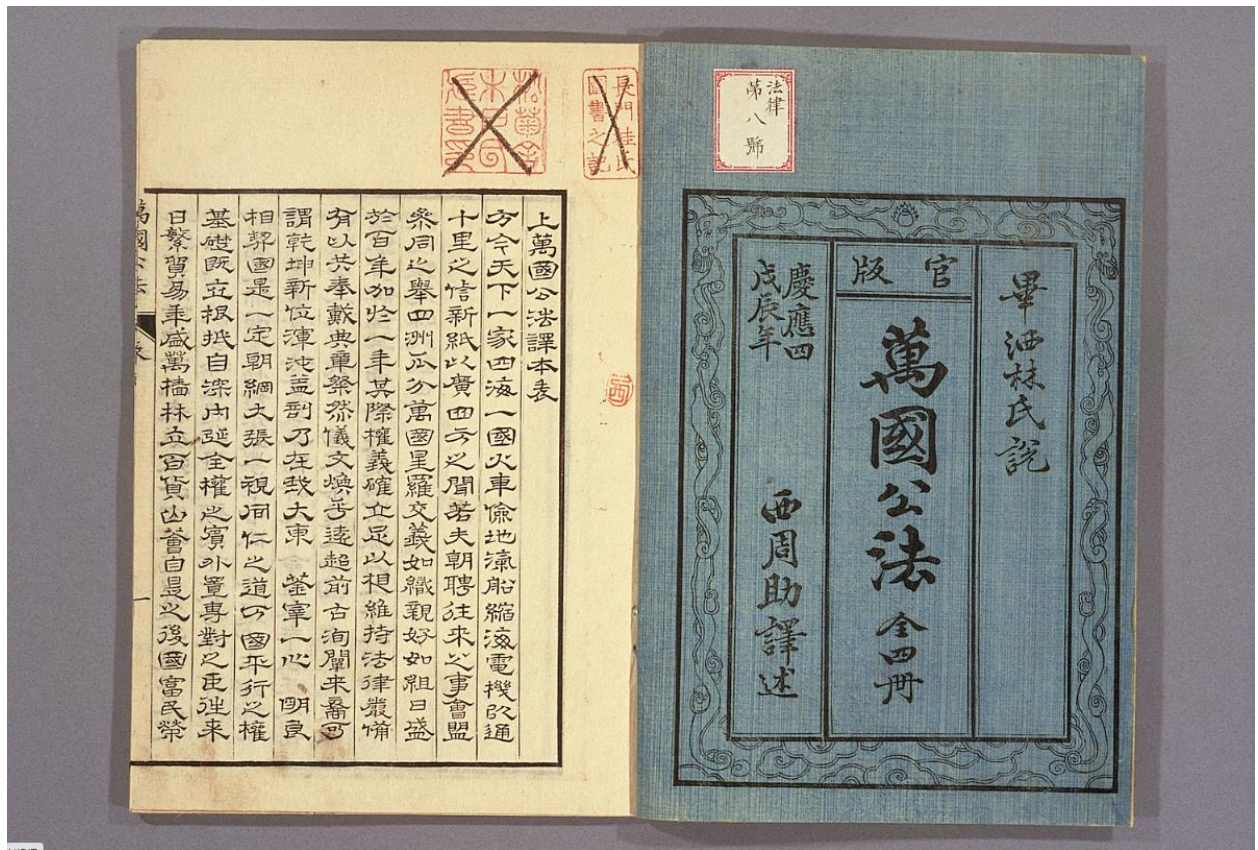 法律
第八號
畢洒林氏説
官版
萬國公法 全四冊
慶應四
戊辰年
西周助譯述
長門桂氏
圖書之記
松菊舍
西
上萬國公法譯本表
方今天下一家四海一國火車儉地滊船縮海電機以通
十里之信新紙以廣四方之聞若夫朝聘往來之事會盟
參同之舉四洲瓜分萬國星羅交義如織親好如組日盛
於百年加於一年其際權義確立足以相維持法律嚴備
有以共奉戴典章粲然儀文煥乎遠超前古洵闢來裔可
謂乾坤新位渾沌益剖乃在我大東 荃宰一心 明良
相契國是一定朝綱大張一視同仁之道方國平行之權
基礎既立根柢自深内延全權之賓外置專對之臣往來
日繁貿易年盛萬檣林立百貨山蓄自是之後國富民榮
萬國公法 表 一